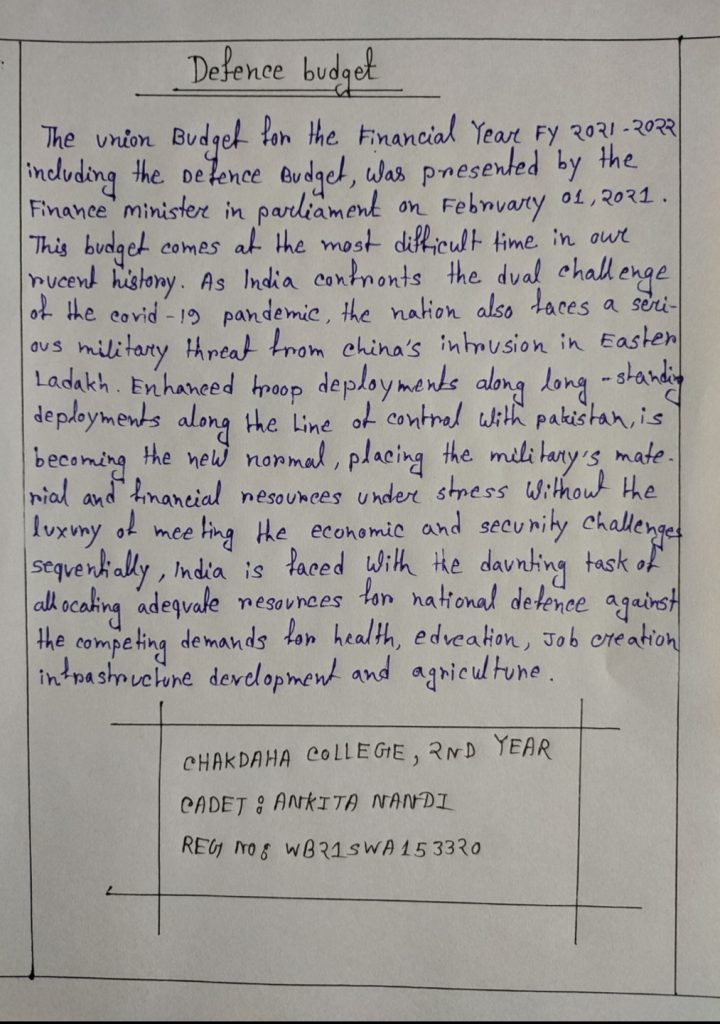 Defence budget
The union Budget for the Financial Year FY 2021-2022
including the Defence Budget, was presented by the
Finance minister in parliament on February 01, 2021.
This budget comes at the most difficult time in our
rucent history. As India confronts the dual challenge
of the covid-19 pandemic, the nation also faces a seri-
ous military threat from china's intrusion in Eastern
Ladakh. Enhanced troop deployments along long-standing
deployments along the Line of control with pakistan, is
becoming the new normal, placing the military's mate-
rial and financial resources under stress without the
luxury of meeting the economic and security challenges
sequentially, India is faced with the daunting task of
allocating adequate resources for national defence against
the competing demands for health, education, Job creation
infrastructure development and agriculture.
CHAKDAHA COLLEGE, 2ND YEAR
CADET : ANKITA NANDI
REG NO : WB21SWA153320